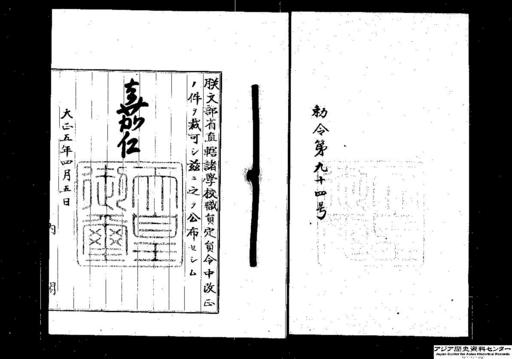 勅令第九十四号
朕文部省直轄諸学校職員定員令中改正
ノ件ヲ裁可シ茲ニ之ヲ公布セシム
嘉仁
天皇御璽
大正五年四月五日
内閣
アジア歴史資料センター
Japan Center for Asian Historical Records